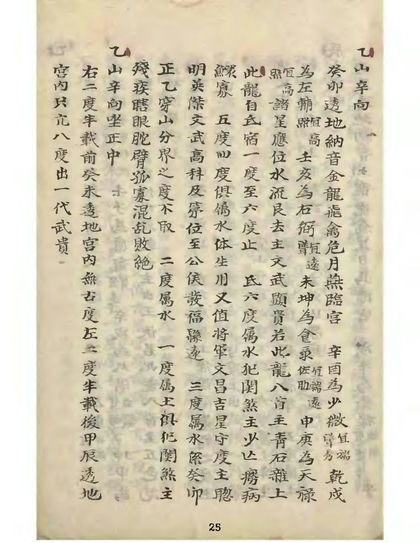 乙山辛向
癸卯透地納音金龍虎禽危月燕臨宮 辛酉為少微宜端聳秀 乾戌
為左輔宜高照 壬亥為右弼宜遠 未坤為食祿宜諸遠佐助 申庚為天祿
宜高照諸星應位水流艮去主文武顯貴若此龍八首主青石雜上
此龍自氐宿一度至六度止 氐六度屬水犯関煞主少亡癆病
鰥寡 五度四度俱屬水体生用又值將軍文昌吉星守度主聰
明英傑文武高科及第位至公侯發福驟遠 三度屬水係癸卯
正乙穿山分界之度不取 二度屬水 一度屬土俱犯関煞主
殘疾瞎眼跎臂孤寡混乱敗絕
乙山辛向坐正中
右二度半載前癸未透地宮內無古度左二度半載後甲辰透地
宮內只亢八度出一代武貴
25